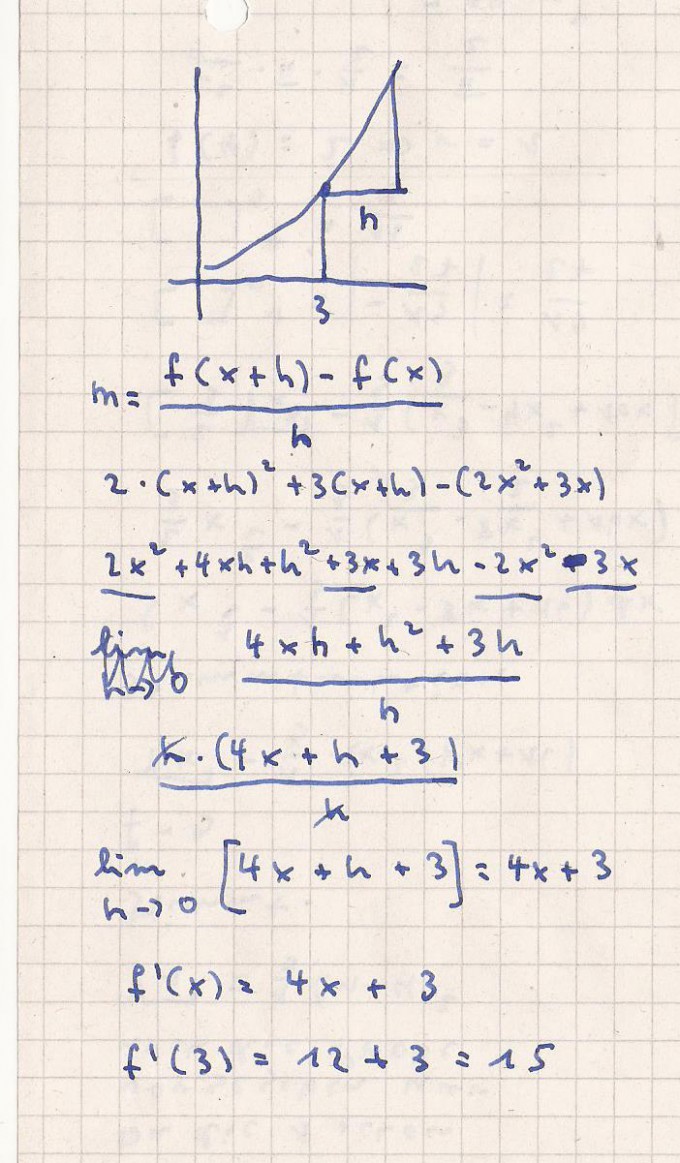 h
3
m = f(x+h) - f(x) / h
2·(x+h)² + 3(x+h) - (2x² + 3x)
2x² + 4xh + h² + 3x + 3h - 2x² - 3x
lim h→0 4xh + h² + 3h / h
h·(4x + h + 3) / h
lim h→0 [4x + h + 3] = 4x + 3
f'(x) = 4x + 3
f'(3) = 12 + 3 = 15